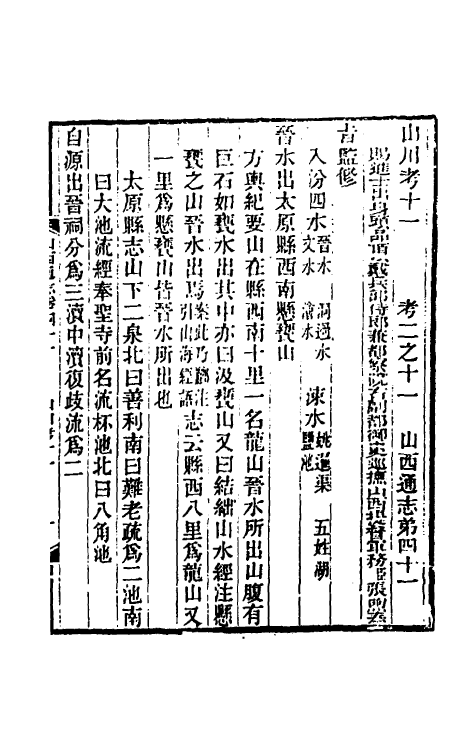 山川考十一　考二之十一　山西通志第四十一
賜進士出身頭品頂戴兵部侍郎兼都察院右副都御史巡撫山西提督軍務張煦
監修
入汾四水 晉水 洞過水 文水 涑水 姚暹渠 鹽池 五姓湖
晉水出太原縣西南懸甕山
方輿紀要山在縣西南十里一名龍山晉水所出山腹有
巨石如甕水出其中亦曰汲甕山又曰結絀山水經注懸
甕之山晉水出焉 案此乃酈注引山海經語 志云縣西八里爲龍山又
一里爲懸甕山皆晉水所出也
太原縣志山下二泉北曰善利南曰難老疏爲二池南
曰大池流經奉聖寺前名流杯池北曰八角池
自源出晉祠分爲三瀆中瀆復歧流爲二